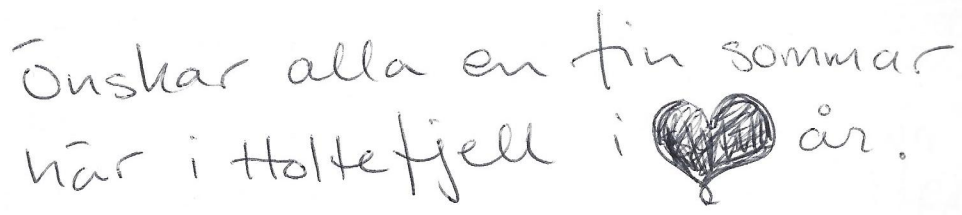 Önskar alla en fin sommar
här i Holtefjell i år.